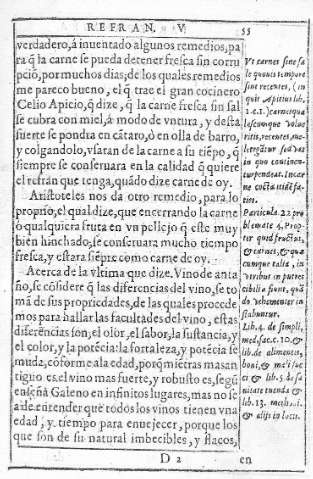 REFRAN. V. 55
verdadero, á inuentado algunos remedios, pa
ra q̃ la carne se pueda detener fresca sin corru
pciõ, por muchos dias; de los quales remedios
me pareco bueno, el q̃ trae el gran cocinero
Celio Apicio, q̃ dize, q̃ la carne fresca sin sal
se cubra con miel, á modo de vntura, y desta
suerte se pondra en cãtaro, ò en olla de barro,
y colgandolo, vsatan de la carne a su tiẽpo, q̃
siempre se conseruara en la calidad q̃ quiere
el refrán que tenga, quãdo dize carne de oy.
Aristoteles nos da otro remedio, para lo
proprio, el qual dize, que encerrando la carne
ò qualquiera fruta en vn pellejo q̃ este muy
bien hinchado, se conseruara mucho tiempo
fresca, y estara siẽpre como carne de oy.
Acerca de la vltima que dize. Vino de anta
ño, se cõsidere q̃ las diferencias del vino, se to
mã de sus propriedades, de las quales procede
mos para hallar las facultades del vino, estas
diferencias son, el olor, el sabor, la sustancia, y
el color, y la potẽcia: la fortaleza, y potẽcia se
muda, cõforme a la edad, porq̃ miẽtras mas an
tiguo es, el vino mas fuerte, y robusto es, segũ
enseña Galeno en infinitos lugares, mas no se
a de entender que todos los vinos tienen vna
edad, y tiempo para enuejecer, porque los
que son de su natural imbecibles, y flacos,
D 2 en
Vt carnes sine sa
le quouis tempore
sint recentes, (in
quit Apitius lib.
1. c. 1.) carnes qua
lescunque volue
ritis, recentes, me-
in quo continen-
tur pendeat. Incar
ne cocta
ties.
Particula 22 pro
blemate 4. Prop-
ter quid fructus,
& carnes, & quæ
cumque talia in
vtribus in putres
cibilia sunt, quã
do vehementer in
Lib. 4. de simpli.
med. fac. c. 10. &
lib. de alimentis,
boni, & mali succi
& lib. 5. de sa
nitate tuenda &
lib. 13.
& alijs in locis.